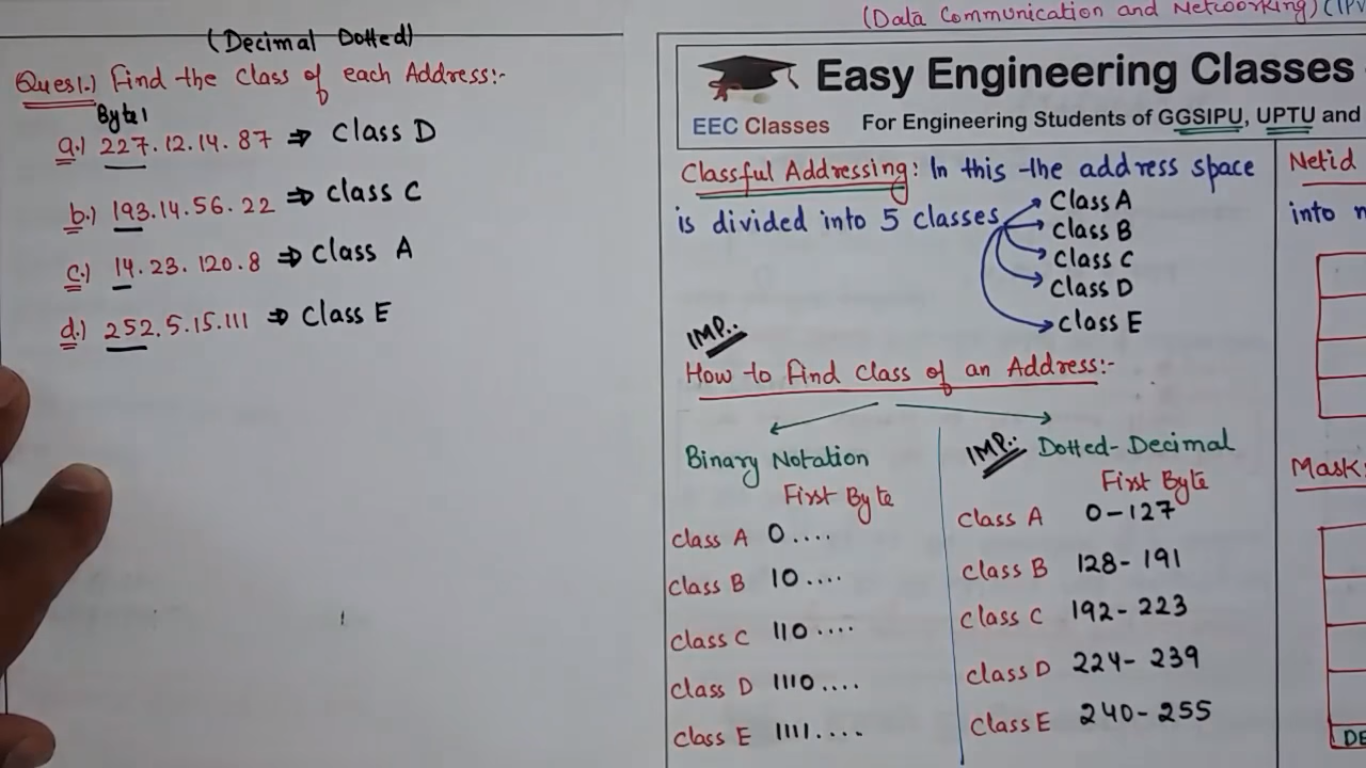 (Data Communication and Networking) (IPv
(Decimal Dotted)
Ques1.) Find the class of each Address:-
Byte1
a.) 227.12.14.87 ⇒ Class D
b.) 193.14.56.22 ⇒ Class C
c.) 14.23.120.8 ⇒ Class A
d.) 252.5.15.111 ⇒ Class E
Easy Engineering Classes
EEC Classes
For Engineering Students of GGSIPU, UPTU and
Classful Addressing: In this the address space
is divided into 5 classes
Class A
Class B
Class C
Class D
Class E
IMP..
How to find class of an Address:-
Binary Notation
First Byte
Class A 0....
Class B 10....
Class C 110....
Class D 1110....
Class E 1111....
IMP.. Dotted-Decimal
First Byte
Class A 0-127
Class B 128-191
Class C 192-223
Class D 224-239
Class E 240-255
Netid
into
Mask:
DE